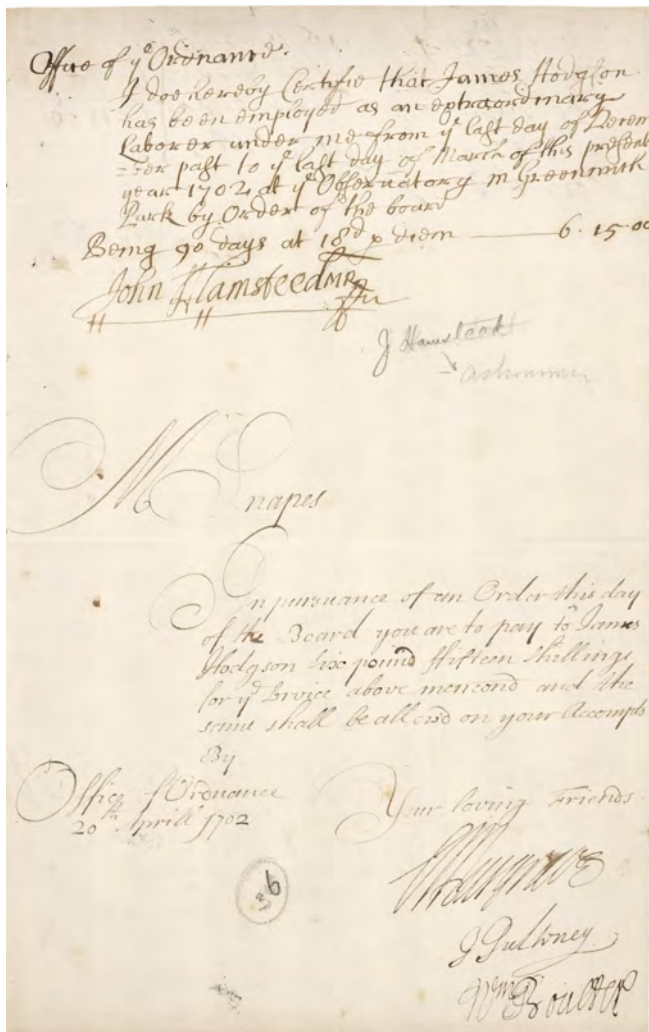 Office of yᵉ Ordnance.
I doe hereby Certifie that James Hodgson
has been employed as an extraordinary
Laborer under me from yᵉ last day of Decem
=ber past to yᵉ last day of March of this present
year 1702 at yᵉ Observatory in Greenwich
Park by Order of the board
Being 90 days at 18ᵈ p diem —— 6. 15. 00
John Flamsteed MR
J Flamstead
astronomer
Mʳ Snapes
In pursuance of an Order this day
of the Board you are to pay to James
Hodgson Six pound fifteen shillings
for yᵉ Service above mencond and the
same shall be allowd on your Accompts
By
Office of Ordnance
20ᵗʰ Aprill 1702
Your loving Friends
C Musgrave
J Pulteney
Wᵐ Boulter
36